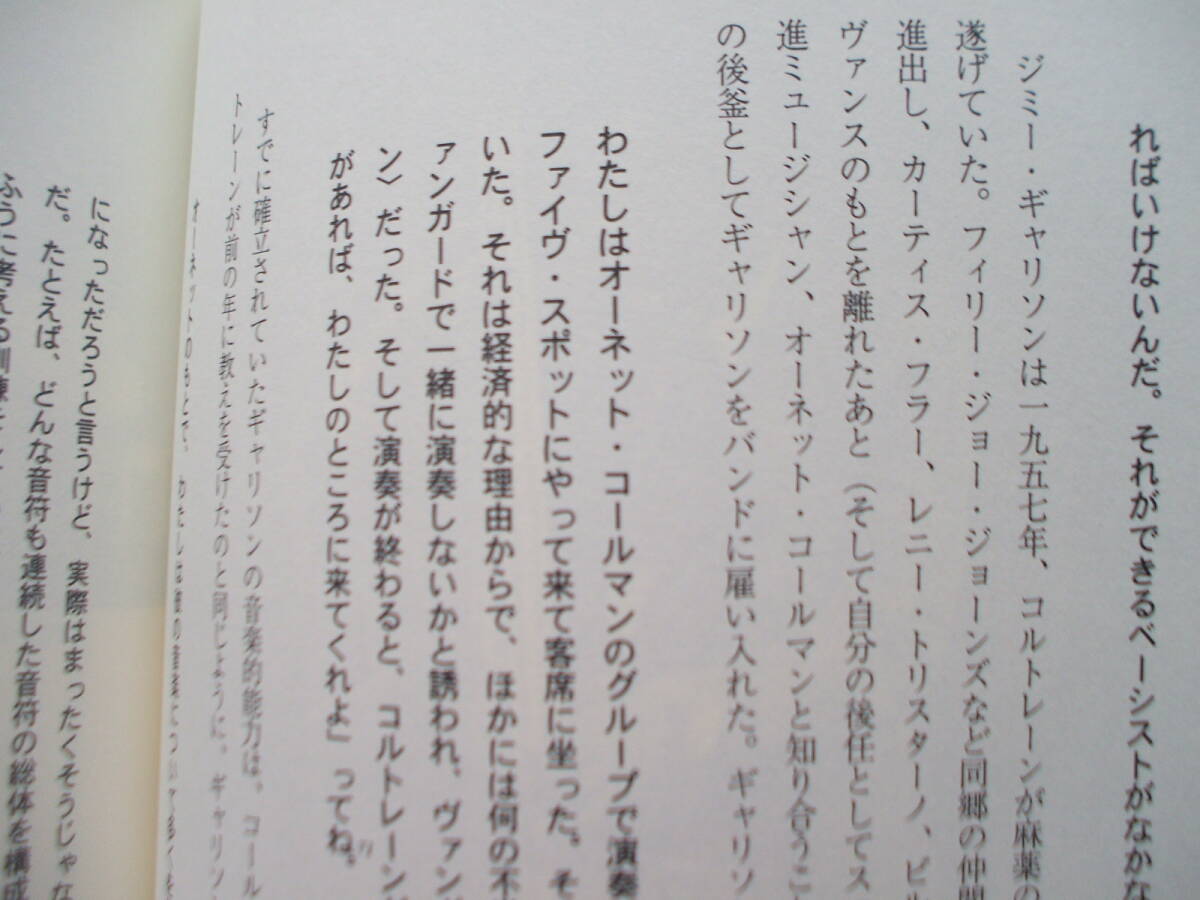 ればいけないんだ。それができるベーシストがなかな
ジミー・ギャリソンは一九五七年、コルトレーンが麻薬の
遂げていた。フィリー・ジョー・ジョーンズなど同郷の仲間
進出し、カーティス・フラー、レニー・トリスターノ、ビル
ヴァンスのもとを離れたあと（そして自分の後任としてス
進ミュージシャン、オーネット・コールマンと知り合うこ
の後釜としてギャリソンをバンドに雇い入れた。ギャリソ
わたしはオーネット・コールマンのグループで演奏
ファイヴ・スポットにやって来て客席に坐った。そ
いた。それは経済的な理由からで、ほかには何の不
ァンガードで一緒に演奏しないかと誘われ、ヴァン
ン〉だった。そして演奏が終わると、コルトレーン
があれば、わたしのところに来てくれよ」ってね。
すでに確立されていたギャリソンの音楽的能力は、コール
トレーンが前の年に教えを受けたのと同じように、ギャリソン
オーネットのもとで、わたしは
になっただろうと言うけど、実際はまったくそうじゃな
だ。たとえば、どんな音符も連続した音符の総体を構成
ふうに考える訓練を